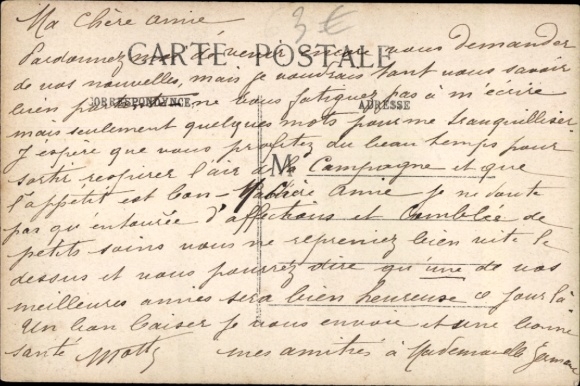 Ma chère amie
3€
CARTE POSTALE
Pardonnez moi de venir encore vous demander
de vos nouvelles, mais je voudrais tant vous savoir
bien ne vous fatiguez pas à m'écrire
CORRESPONDANCE
ADRESSE
mais seulement quelques mots pour me tranquilliser
J'espère que vous profitez du beau temps pour
sortir respirer l'air de la Campagne et que
M
l'appétit est bon - Ma chère amie je ne doute
pas qu'entourée d'affections et Comblée de
petits soins vous ne repreniez bien vite le
dessus et vous pourrez dire qu'une de vos
meilleures amies sera bien heureuse ce jour là
Un bon baiser je vous envoie et une bonne
santé mes amitiés à Mademoiselle Germaine